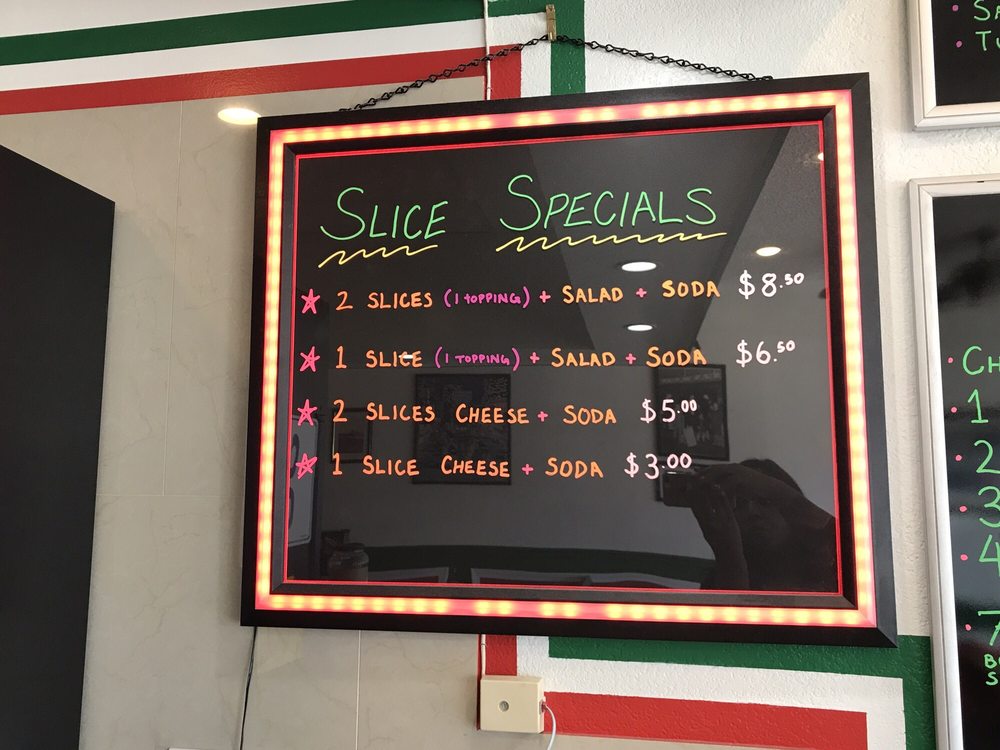 SLICE SPECIALS
2 SLICES (1 TOPPING) + SALAD + SODA $8.50
1 SLICE (1 TOPPING) + SALAD + SODA $6.50
2 SLICES CHEESE + SODA $5.00
1 SLICE CHEESE + SODA $3.00
1
2
3
4
7